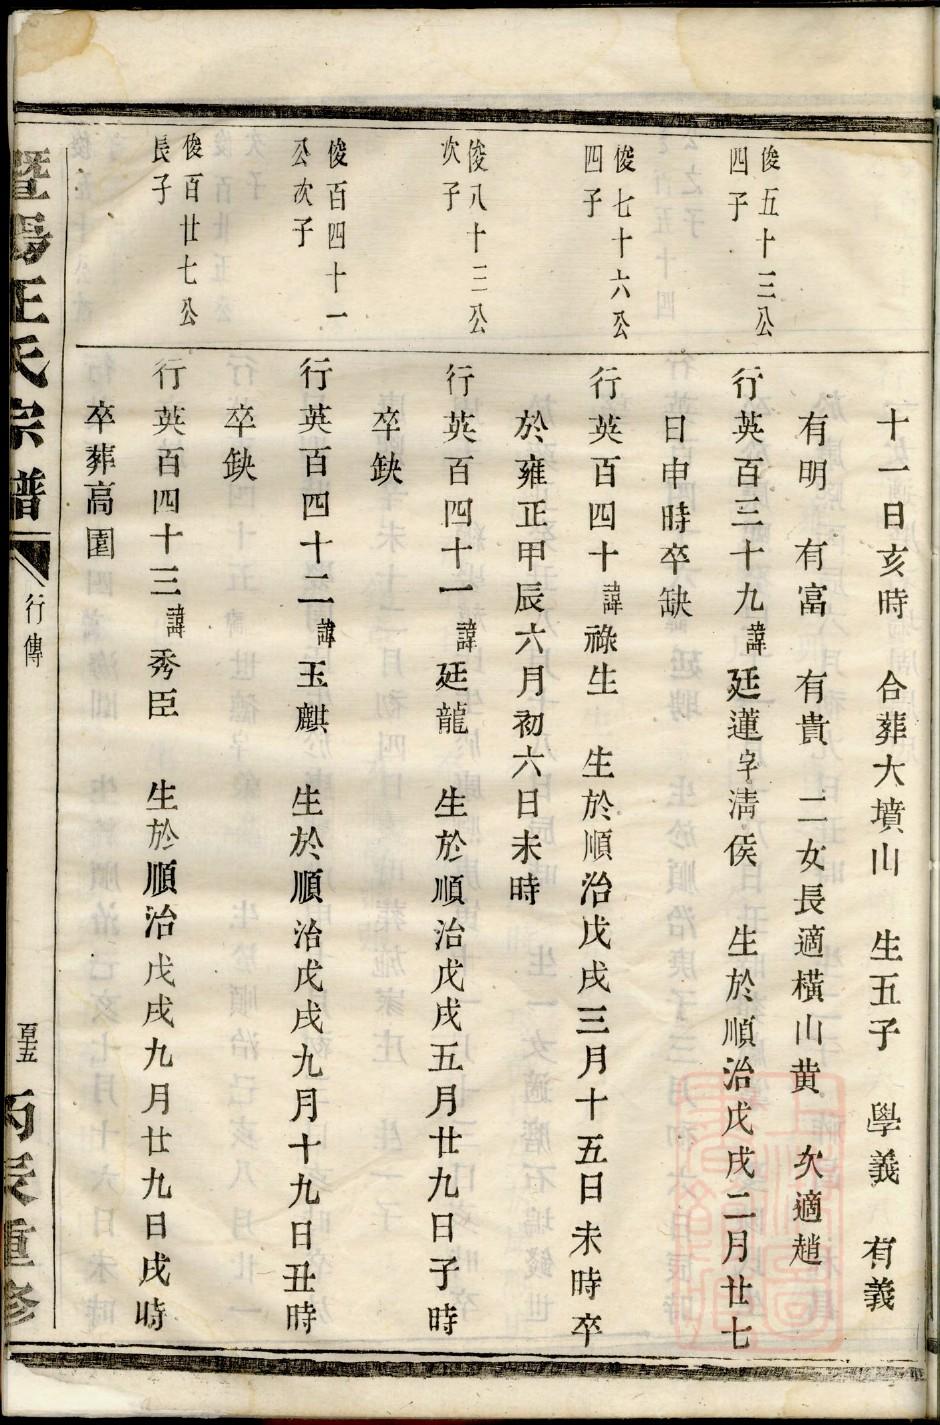 十一日亥時 合葬大墳山 生五子 學義 有義
有明 有富 有貴 二女長適橫山黄 次適趙
俊五十三公
四子
行英百三十九諱廷蓮字淸侯 生於順治戊戌二月廿七
日申時卒缺
俊七十六公
四子
行英百四十諱祿生 生於順治戊戌三月十五日未時卒
於雍正甲辰六月初六日未時
俊八十三公
次子
行英百四十一諱廷龍 生於順治戊戌五月廿九日子時
卒缺
俊百四十一
公次子
行英百四十二諱玉麒 生於順治戊戌九月十九日丑時
卒缺
俊百廿七公
長子
行英百四十三諱秀臣 生於順治戊戌九月廿九日戌時
卒葬高園
暨陽王氏宗譜
行傳
丙辰重修